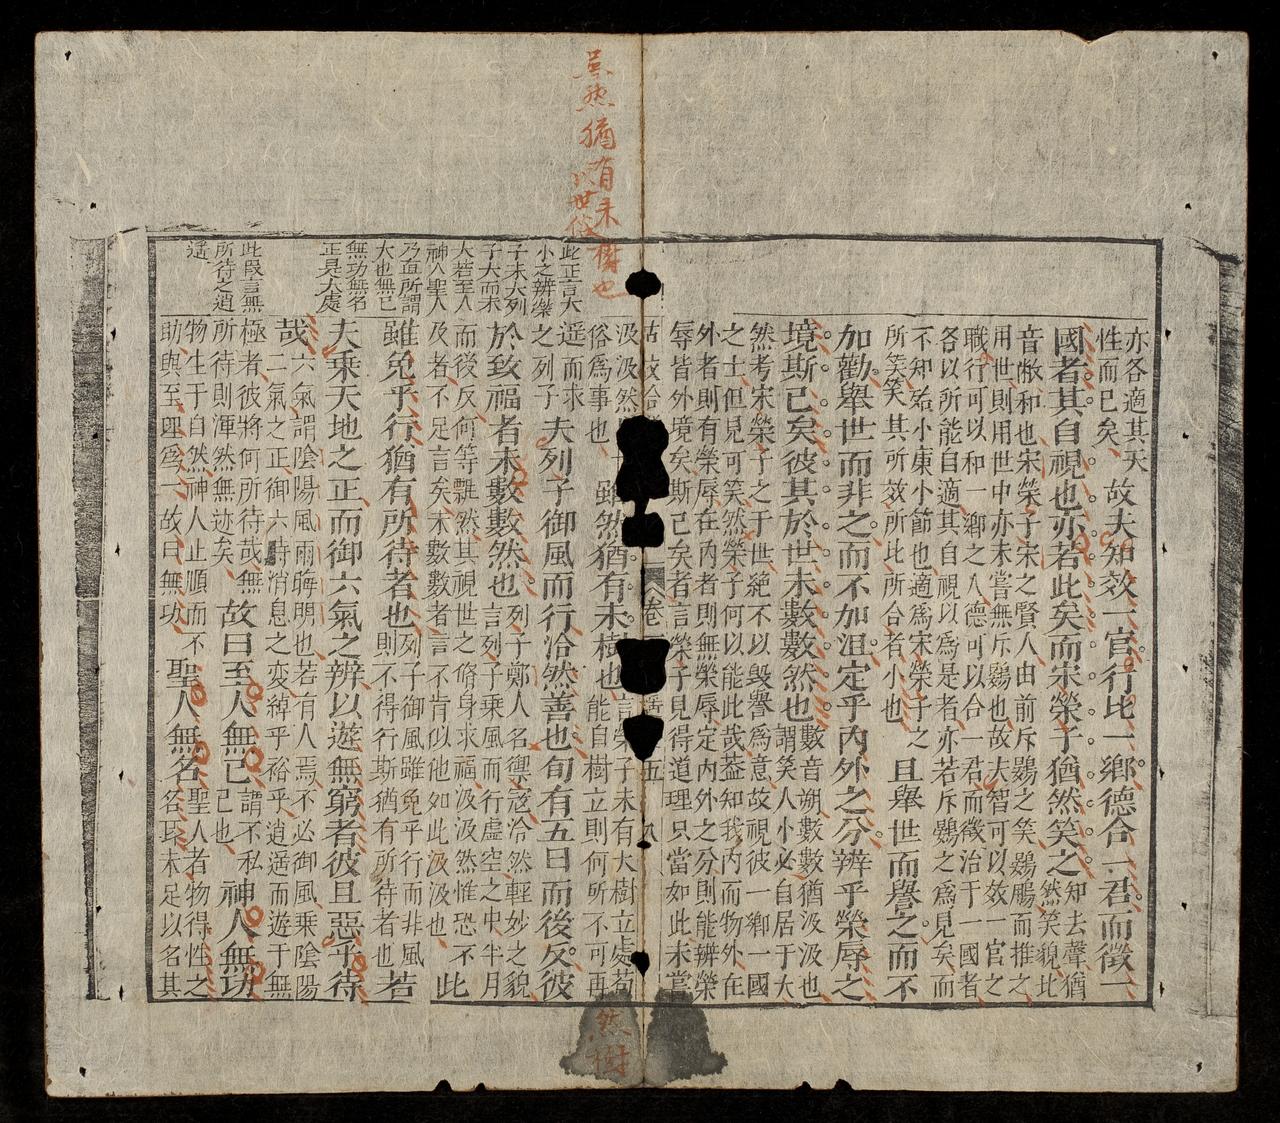 亦各適其天
性而已矣故夫知效一官行比一鄉德合一君而徵一
國者其自視也亦若此矣而宋榮子猶然笑之知去聲猶然笑貌比
音敝和也宋榮子宋之賢人由前斥鷃之笑鵬而推之
用世則用世中亦未嘗無斥鷃也故夫智可以效一官之
職行可以和一鄉之人德可以合一君而徵治于一國者
各以所能自適其自視以為是者亦若斥鷃之為見矣而
不知殆小東小節也適為宋榮子之
所笑笑其所效所比所合者小也且舉世而譽之而不
加勸舉世而非之而不加沮定乎內外之分辨乎榮辱之
境斯已矣彼其於世未數數然也數音朔數數猶汲汲也謂笑人小必自居于大
然考宋榮子之于世絕不以毀譽為意故視彼一鄉一國
之士但見可笑然榮子何以能此哉蓋知我內而物外在
外者則有榮辱在內者則無榮辱定內外之分則能辨榮
辱皆外境矣斯已矣者言榮子見得道理只當如此未嘗
卷 五
汲汲然
俗為事也雖然猶有未樹也言榮子未有大樹立處若能自樹立則何所不可再
遥而求
之列子夫列子御風而行泠然善也旬有五日而後反彼
於致福者未數數然也列子鄭人名禦寇泠然輕妙之貌言列子乘風而行虛空之中半月
而後反何等飄然其視世之脩身求福汲汲然惟恐不
及者不足言矣未數數者言不肯似他如此汲汲也此
雖免乎行猶有所待者也列子御風雖免乎行而非風則不得行斯猶有所待者也若
夫乘天地之正而御六氣之辨以遊無窮者彼且惡乎待
哉六氣謂陰陽風雨晦明也若有人焉不必御風乘陰陽
二氣之正御六時消息之変綽乎裕乎逍遥而遊于無
極者彼將何所待哉無
所待則渾然無迹矣故曰至人無己謂不私己也神人無功
物生于自然神人止順而不
助與至即為一故曰無功聖人無名聖人者物得性之名耳未足以名其
此正言大
小之辨榮
子未大列
子大而未
大若至人
神人聖人
乃面所謂
大也無己
無功無名
正是大處
此段言無
所待之逍
遥
虽然猶有未樹也
以世俗
然樹